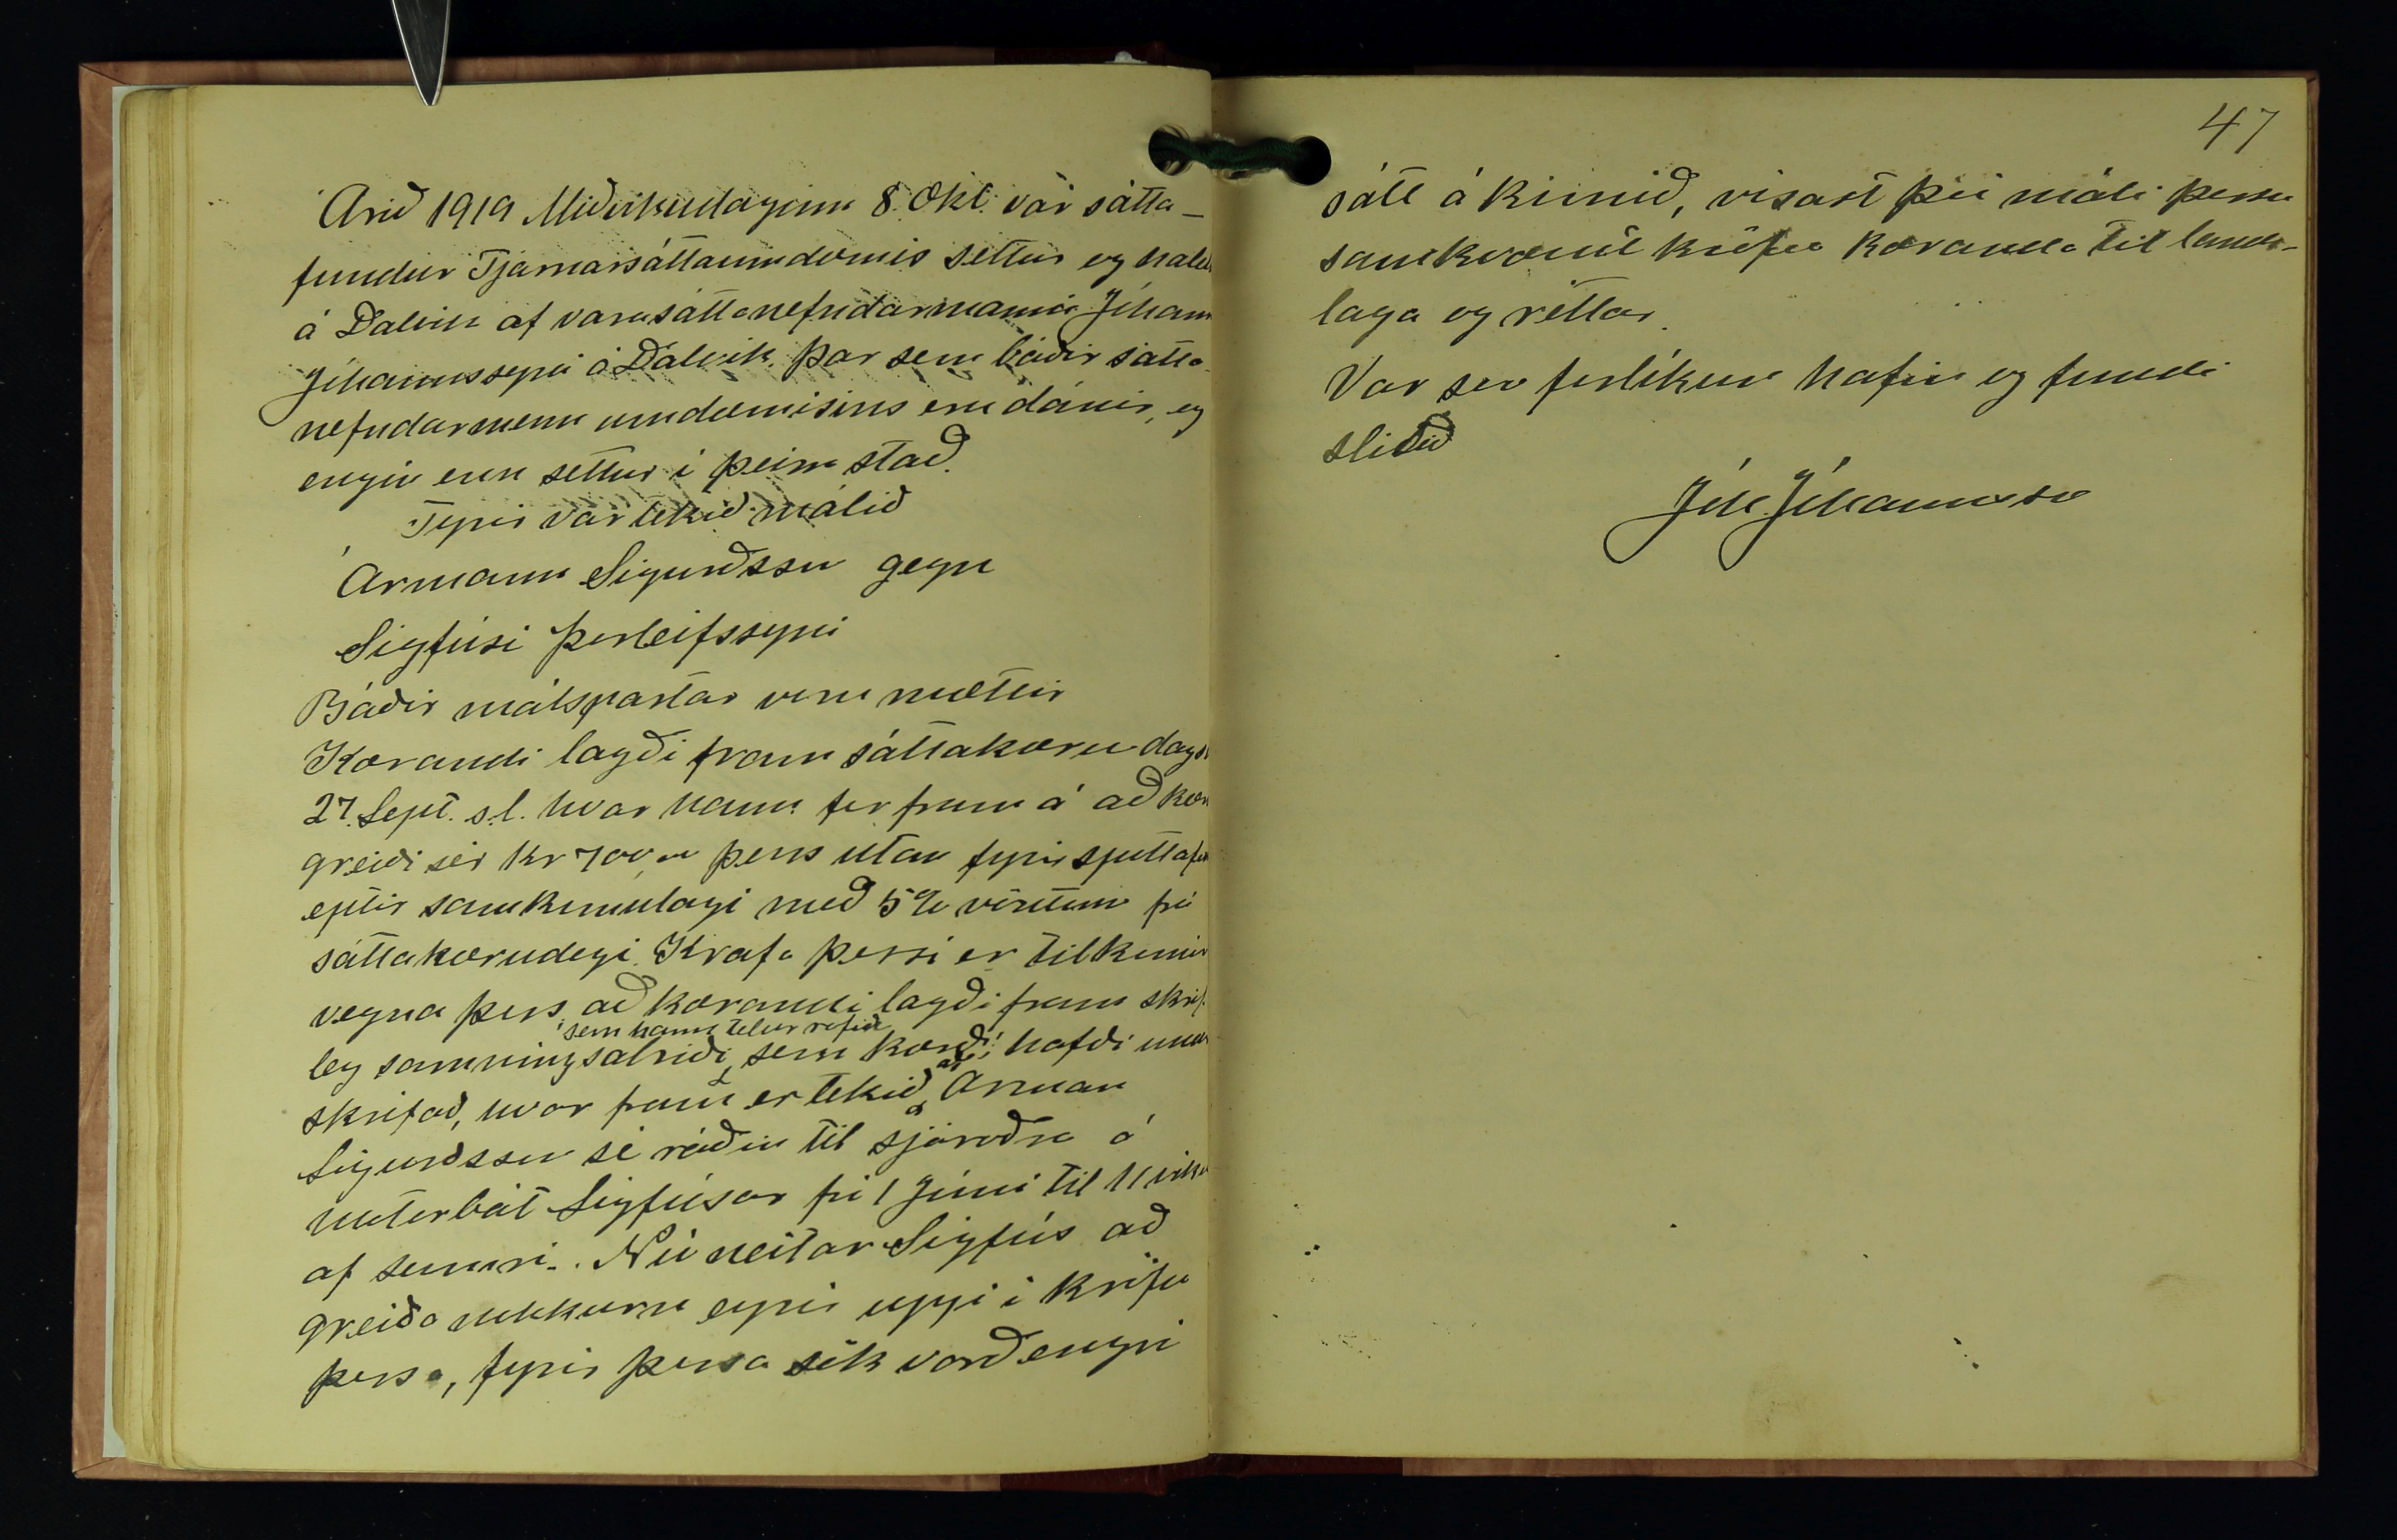 Árið 1919 Miðvikudaginn 8. Okt. var sátta-
fundur Tjarnarsáttaumdæmis settur og haldin
á Dalvík af varasáttanefndarmanni Jóhann
Jóhannssyni á Dalvík þar sem báðir sátta
nefndarmenn umdæmisins eru dánir, og
engin enn settur í þeirra stað.
Fyrir var tekið málið
Ármann Sigurðsson gegn
Sigfúsi Þorleifssyni
Báðir málspartar voru mættir
Kærandi lagði fram sáttakæru dags
27. Sept. s.l. hvar hann fer fram á að kær
greiði sér Kr 700,00 þess utan fyrir
eptir samkomulagi með 5% vöxtum frá
sáttakærudegi. Krafa þessi er tilkomin
vegna þess að kærandi lagði fram skrif
sem hann telur rofið
leg samningsatriði, sem kærði hafði undir
skrifað, hvar fram er tekið að Árman
Sigurðsson sé ráðin til sjóróðra á
móterbát Sigfúsar frá 1 Júní til 11 vik
af sumri. Nú neitar Sigfús að
greiða nokkurn eyrir uppí í kröfu
þessa, fyrir þessa sök varð engin
47
sátt á komið, vísast því máli þessu
samkvæmt kröfu kæranda til lands-
laga og réttar.
Var svo forlíkun hafin og fundi
slitið
Jóh. Jóhannsson